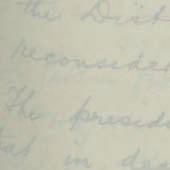 the Dist
reconsider
The presid
that in de